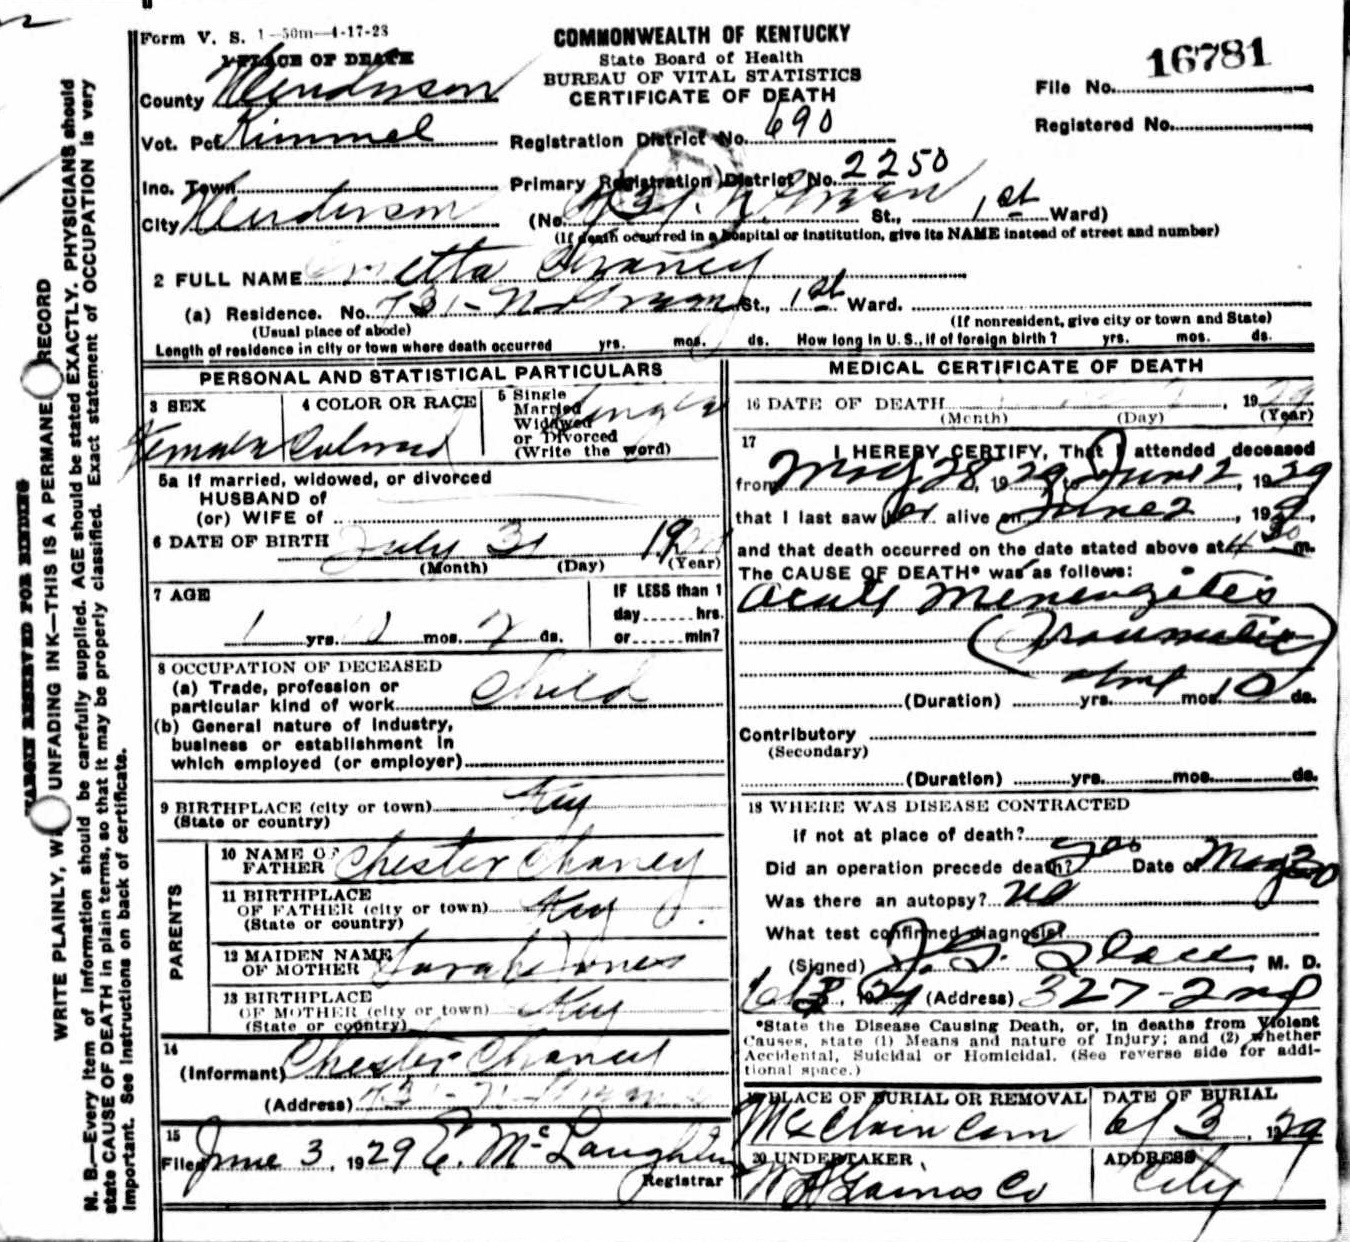 Form V. S. 1-50m-4-17-28
1 PLACE OF DEATH
COMMONWEALTH OF KENTUCKY
State Board of Health
BUREAU OF VITAL STATISTICS
CERTIFICATE OF DEATH
16781
File No.
Registered No.
County Henderson
Vot. Pct Kimmel
Registration District No. 690
Inc. Town
Primary Registration District No. 2250
City Henderson
(No. 731 N. St., 1st Ward)
(If death occurred in a hospital or institution, give its NAME instead of street and number)
2 FULL NAME etta Chaney
(a) Residence. No. 731 - N St., 1st Ward.
(Usual place of abode)
(If nonresident, give city or town and State)
Length of residence in city or town where death occurred yrs. mos. ds. How long in U. S., if of foreign birth? yrs. mos. ds.
PERSONAL AND STATISTICAL PARTICULARS
3 SEX
Female
4 COLOR OR RACE
Colored
5 Single
Married
Widowed
or Divorced
(Write the word)
Single
5a If married, widowed, or divorced
HUSBAND of
(or) WIFE of
6 DATE OF BIRTH July 31 19
(Month) (Day) (Year)
7 AGE
1 yrs. mos. ds.
IF LESS than 1
day hrs.
or min?
8 OCCUPATION OF DECEASED
(a) Trade, profession or
particular kind of work Child
(b) General nature of industry,
business or establishment in
which employed (or employer)
9 BIRTHPLACE (city or town) Ky
(State or country)
PARENTS
10 NAME OF
FATHER Chester Chaney
11 BIRTHPLACE
OF FATHER (city or town) Ky
(State or country)
12 MAIDEN NAME
OF MOTHER Sarah Jones
13 BIRTHPLACE
OF MOTHER (city or town) Ky
(State or country)
14
(Informant) Chester Chaney
(Address) 731 - N.
15
Filed June 3, 1929 E. McLaughlin
Registrar
MEDICAL CERTIFICATE OF DEATH
16 DATE OF DEATH , 1929
(Month) (Day) (Year)
17 I HEREBY CERTIFY, That I attended deceased
from May 28, 1929 to June 2, 1929
that I last saw her alive on June 2, 1929
and that death occurred on the date stated above at 4 30 m.
The CAUSE OF DEATH* was as follows:
Acute Meningitis
(Traumatic)
(Duration) yrs. mos. 10 ds.
Contributory
(Secondary)
(Duration) yrs. mos. ds.
18 WHERE WAS DISEASE CONTRACTED
if not at place of death?
Did an operation precede death? yes Date of May 30
Was there an autopsy? no
What test confirmed diagnosis?
(Signed) , M. D.
6/3, 1929 (Address) 327-2nd
*State the Disease Causing Death, or, in deaths from Violent
Causes, state (1) Means and nature of Injury; and (2) whether
Accidental, Suicidal or Homicidal. (See reverse side for addi-
tional space.)
19 PLACE OF BURIAL OR REMOVAL
McClain Cem
DATE OF BURIAL
6/3, 1929
20 UNDERTAKER
W H Gaines Co
ADDRESS
City
MARGIN RESERVED FOR BINDING
WRITE PLAINLY, WITH UNFADING INK—THIS IS A PERMANENT RECORD
N. B.—Every item of information should be carefully supplied. AGE should be stated EXACTLY. PHYSICIANS should
state CAUSE OF DEATH in plain terms, so that it may be properly classified. Exact statement of OCCUPATION is very
important. See instructions on back of certificate.